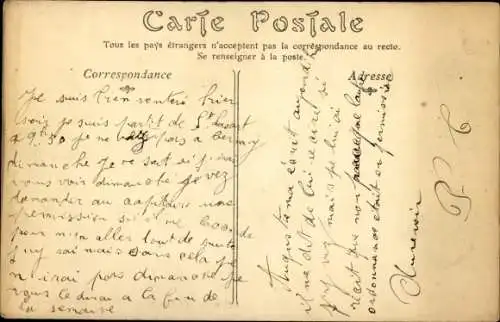 Carte Postale
Tous les pays étrangers n'acceptent pas la correspondance au recto.
Se renseigner à la poste.
Correspondance
Adresse
Je suis bien rentré hier
soir je suis partit de St Lasart
9h 30 je ne vez pas a
dimanche je ce sait si j irai
vous voir dimanche je vez
demander au capitaine une
permission si il me
pour m en aller tout de suite
j y sai mais sans cela je
n irai pas dimanche je
vous le dirai a la fin de
la semaine
Auguste ma écrit aujourdh
il ma dit de lui écrire si
j y mais je lui ai
récrit que non parce que l autre
ordonnance était en permission
Au revoir